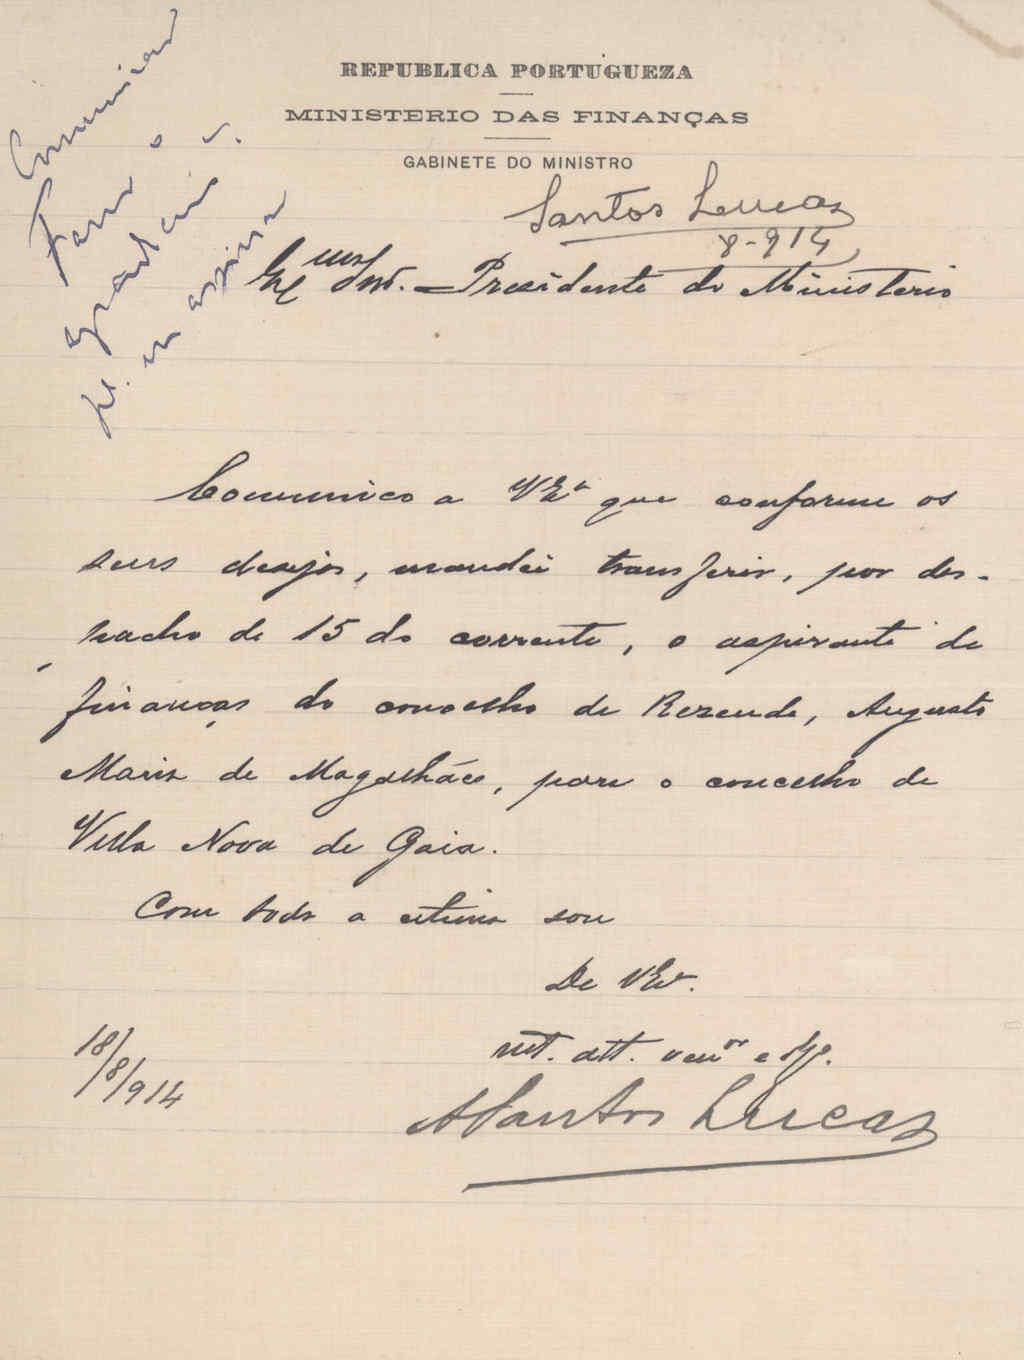 REPUBLICA PORTUGUEZA
MINISTERIO DAS FINANÇAS
GABINETE DO MINISTRO
Santos Lucas
8-914
Communicar
o
Exmo Snr. Presidente do Ministerio
Communico a VExa que conforme os
seus desejos, mandei transferir, por des-
pacho de 15 do corrente, o aspirante de
finanças do concelho de Rezende, Augusto
Maria de Magalhães, para o concelho de
Villa Nova de Gaia.
Com toda a estima sou
De VExa.
mt. att. venor e
18/8/914
A Santos Lucas